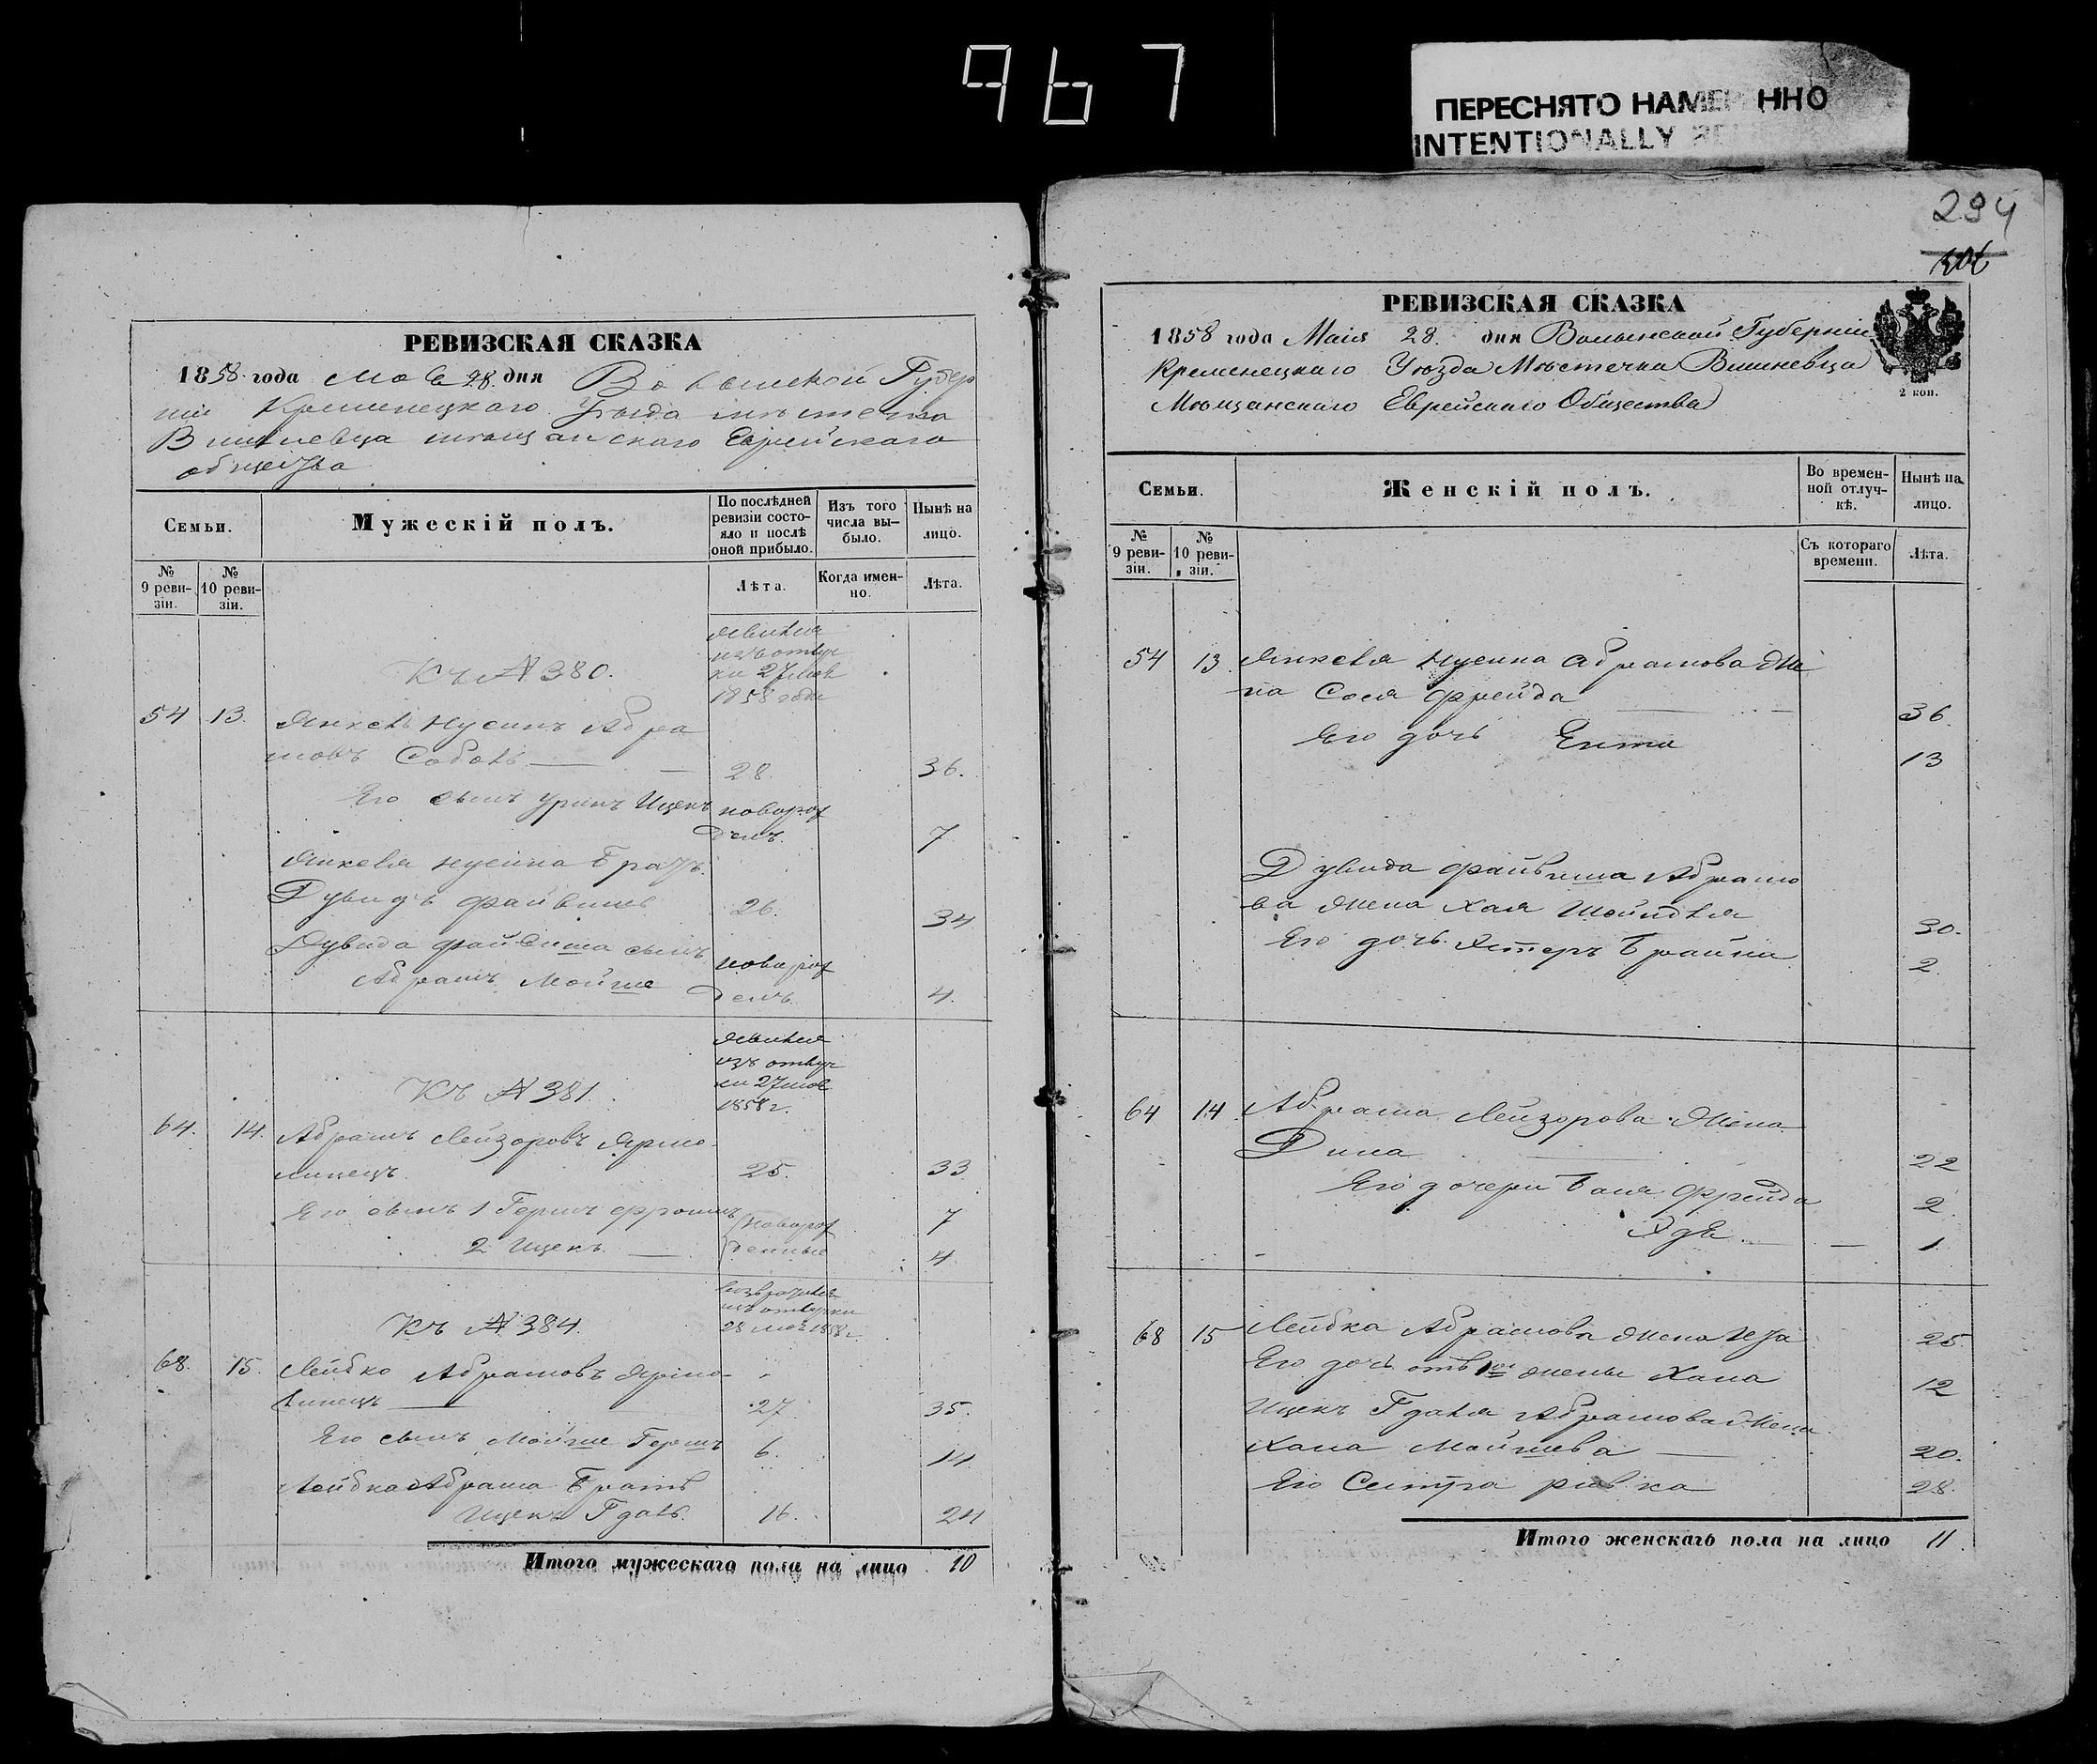 967
ПЕРЕСНЯТО НАМЕ ННО
INTENTIONALLY RE
294
РЕВИЗСКАЯ СКАЗКА
1858 года Мая 28 дня Волынской Губер
ніи Кременецкаго Уезда местечка
Вишневца мещанскаго Еврейскаго
общества
Семьи.
Мужескій полъ.
По послѣдней ревизіи состояло и послѣ оной прибыло.
Изъ того числа выбыло.
Нынѣ на лицо.
№ 9 ревизіи.
№ 10 ревизіи.
Лѣта.
Когда именно.
Лѣта.
явился
изъ отлуч
ки 27 мая
1858 года
Къ № 380.
54 13. Янкель Нусинъ Абра
мовъ Соболь 28. 36.
Его сынъ Уринъ Ицекъ новорож
денъ. 7
Янкеля Нусина братъ
Дувидъ Файвишъ 26. 34
Дувида Файвиша сынъ новорож
Абрамъ Мойше денъ. 4.
явился
изъ отлуч
ки 27 мая
1858 г.
Къ № 381.
64. 14. Абрамъ Лейзоровъ Ярмо-
линецъ 25. 33
Его сынъ 1 Гершъ Фроимъ новорож 7
2 Ицекъ. денные 4
возвратился
изъ отлучки
28 мая 1858 г.
Къ № 384.
68. 15. Лейбко Абрамовъ Ярмо-
линецъ 27 35.
Его сынъ Мойше Гершъ 6. 14
Лейбка Абрама братъ
Ицекъ Гдаль. 16. 24
Итого мужескаго пола на лицо 10
РЕВИЗСКАЯ СКАЗКА
1858 года Маія 28. дня Волынской Губерніи
Кременецкаго Уѣзда Мѣстечка Вишневца
Мѣщанскаго Еврейскаго Общества
2 коп.
Семьи.
Женскій полъ.
Во временной отлучкѣ.
Нынѣ на лицо.
№ 9 ревизіи.
№ 10 ревизіи.
Съ котораго времени.
Лѣта.
54 13. Янкеля Нусина Абрамова же
на Сося Фрейда 36.
Его дочь Ента 13
Дувида Файвиша Абрамо
ва жена Хая Шейндля 30.
Его дочь Эстеръ Брайна 2.
64 14 Абрама Лейзорова жена
Дина 22
Его дочери Бася Фрейда 2.
1
68 15 Лейбка Абрамова жена 25.
Его дочь отъ 1ой жены Хана 12
Ицекъ Гдаля Абрамова жена
Хана Мойшева 20.
Его Сестра Ривка 28.
Итого женскаго пола на лицо 11.